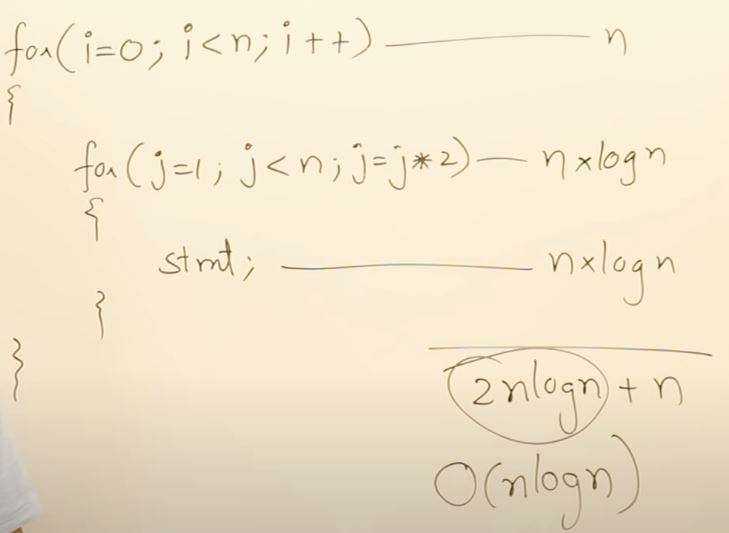 for(i=0; i<n; i++) —— n
{
for(j=1; j<n; j=j*2) — n×logn
{
stmt; —— n×logn
}
}
2nlogn + n
O(nlogn)